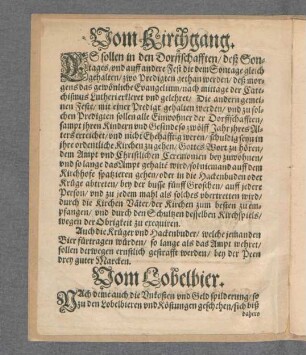 Vom Kirchgang.
ES sollen in den Dorffschafften / deß Son-
tages / und auff andere Fest die dem Sontage gleich
gehalten / zwo Predigten gethan werden / deß mor-
gens das gewönliche Evangelium / nach mittage der Cate-
chismus Lutheri erkleret und gelehret / Die andern gemei-
nen Feste / mit einer Predigt gehalten werden / und zu sol-
chen Predigten sollen alle Einwohner der Dorffschafften /
sampt ihren Kindern und Gesinde so zwölff Jahr ihres Al-
ters erreichet / und nicht Ehehafftig weren / schuldig seyn in
ihre ordentliche Kirchen zu gehen / Gottes Wort zu hören /
dem Ampt und Christlichen Ceremonien bey zuwohnen /
und so lange das Ampt gehalten wird / sol niemand auff dem
Kirchhofe spatzieren gehen / oder in die Hackenbuden oder
Krüge abtreten / bey der busse fünff Groschen / auff jedere
Person / und zu jedem mahl als solches ubertretten wird /
durch die Kirchen Väter / der Kirchen zum besten zu em-
pfangen / und durch den Schultzen desselben Kirchspiels /
wegen der Obrigkeit zu exequiren.
Auch die Krüger und Hackenbuder / welche jemanden
Bier fürtragen würden / so lange als das Ampt wehret /
sollen derwegen ernstlich gestrafft werden / bey der Peen
drey guter Marcken.
Vom Lobelbier.
NAch deme auch die Unkosten und Geld spilderung / so
zu den Lobelbieren und Köstungen geschehen / sich biß
dahero